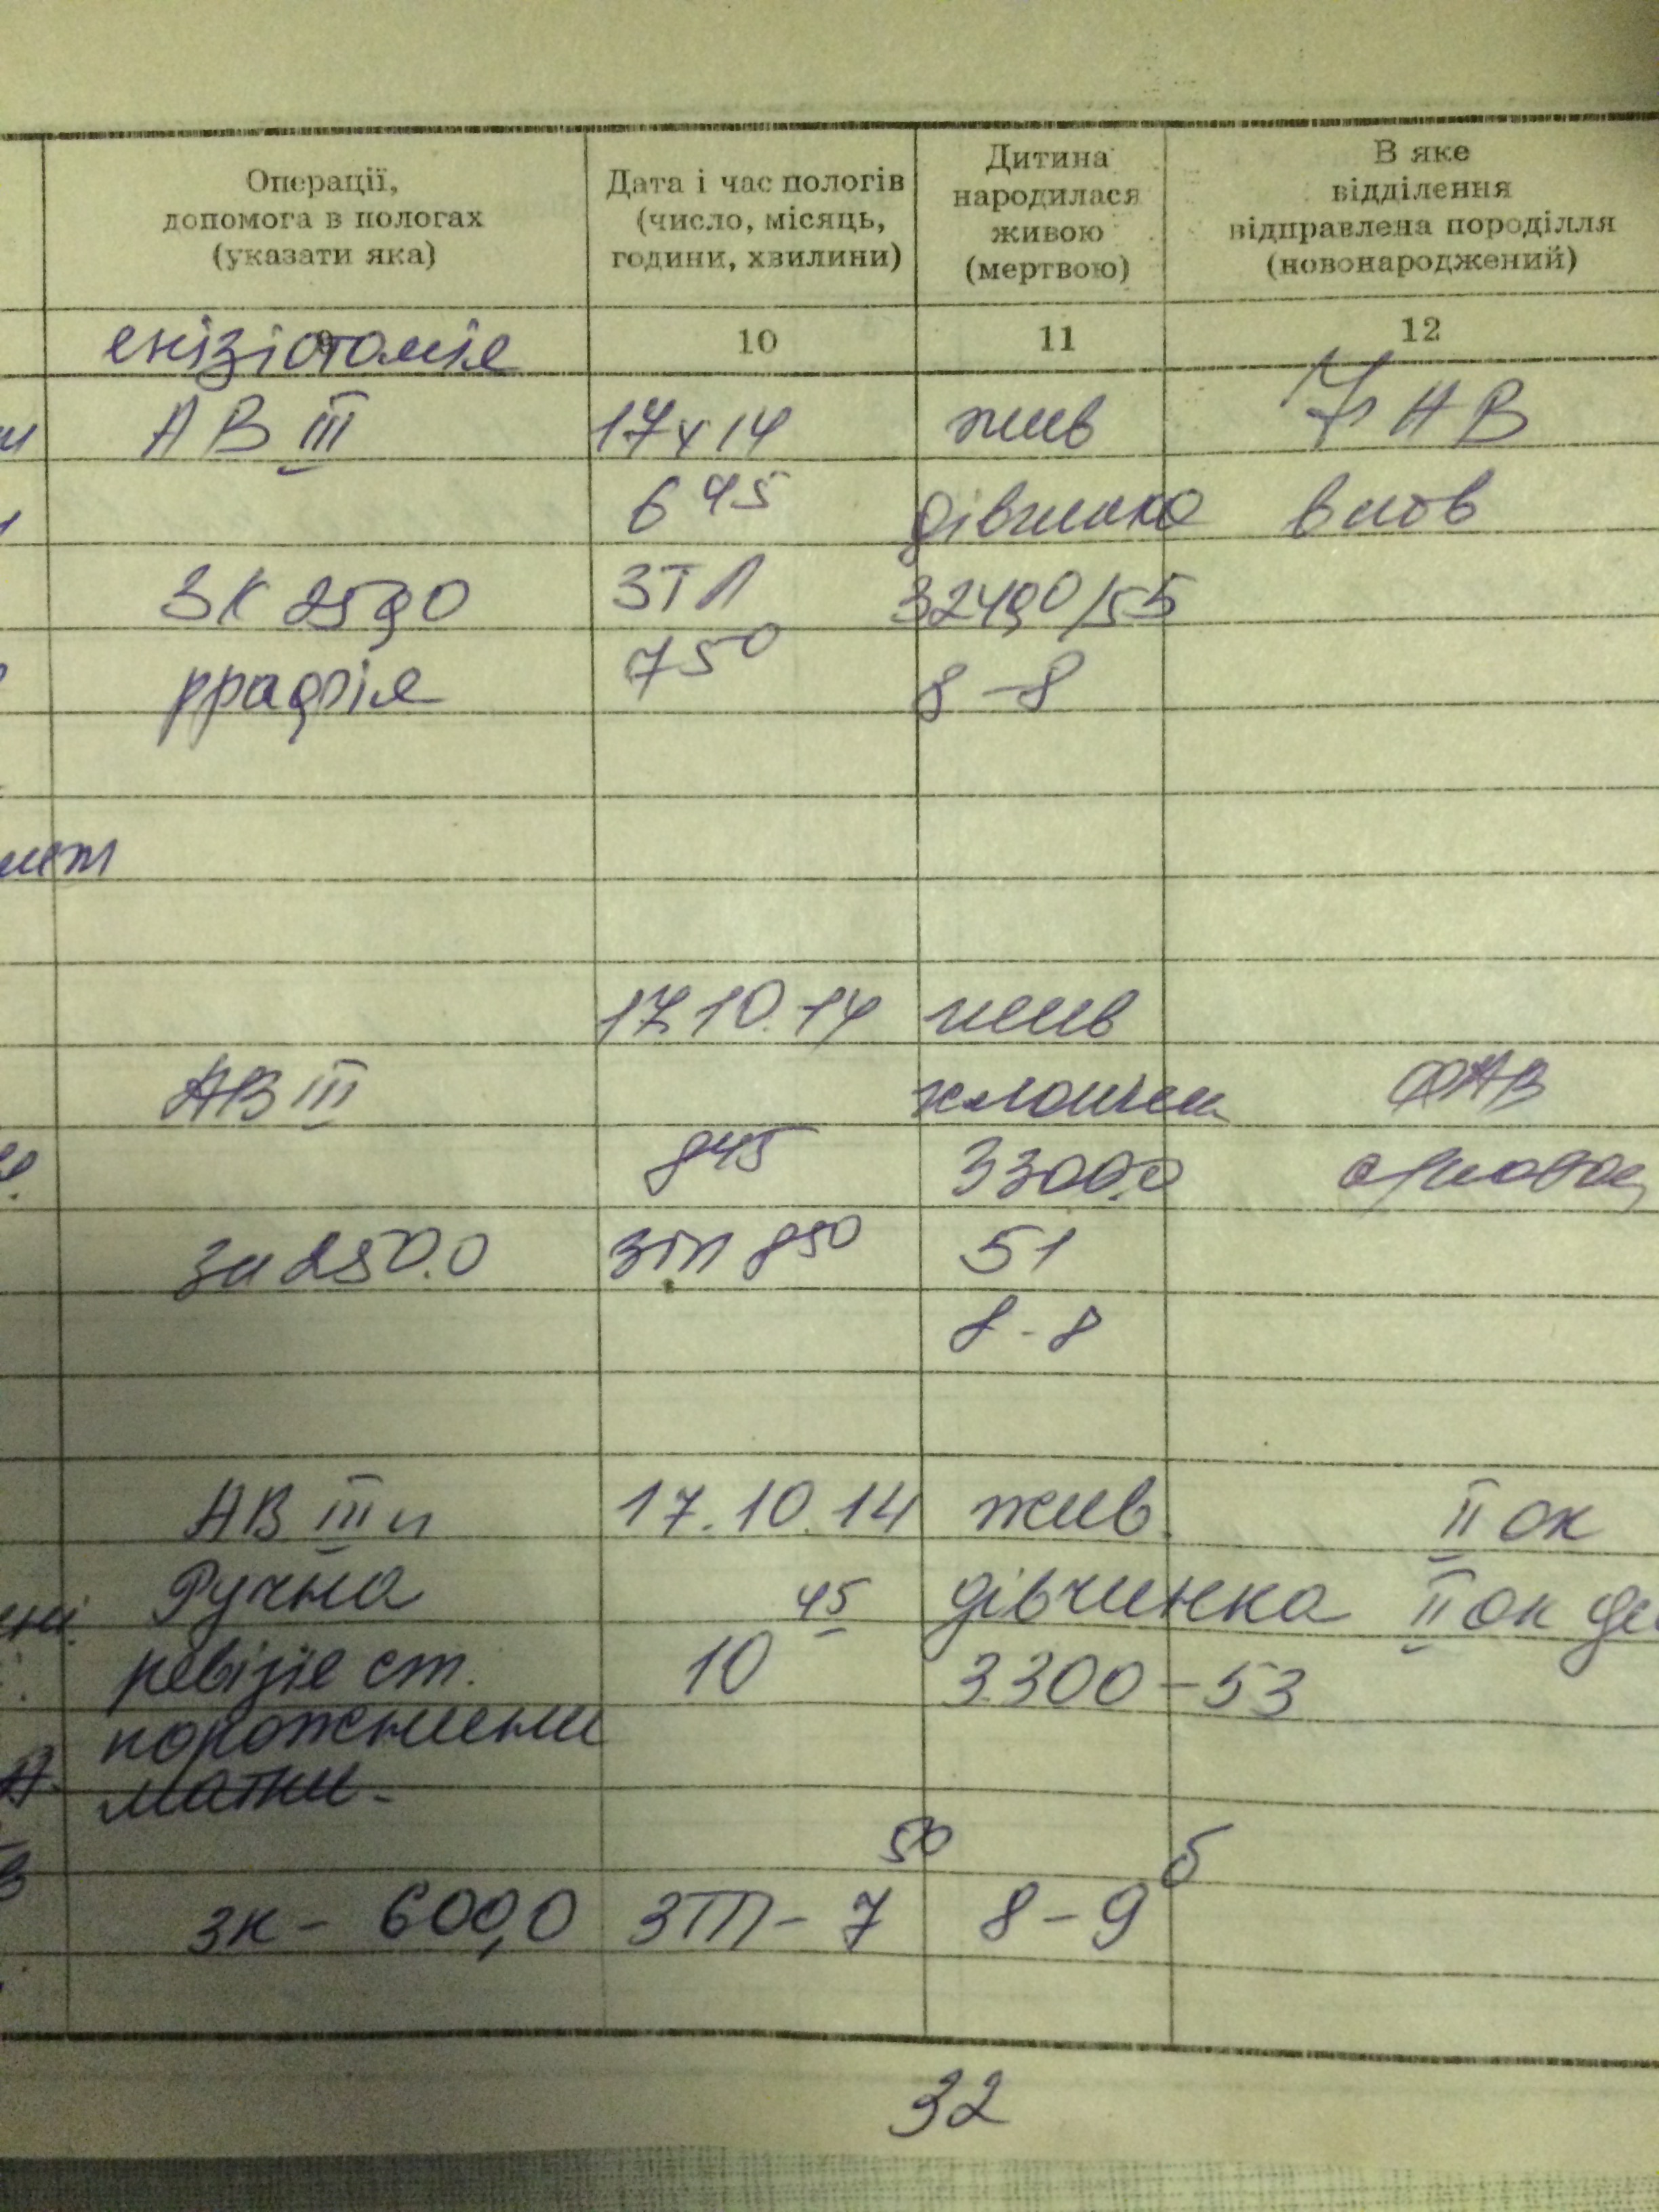 Операції,
допомога в пологах
(указати яка)
Дата і час пологів
(число, місяць,
години, хвилини)
Дитина
народилася
живою
(мертвою)
В яке
відділення
відправлена породілля
(новонароджений)
9 10 11 12
епізіотомія
АВ III 17 х 14 жив АВ
6 45 дівчинка
ЗК 250,0 ЗТЛ 3240,0/55
ррафія 7 50 8-8
17.10.14 жив
АВ III хлопчик ФАВ
8 45 3300.0
зк 250.0 зтл 8 50 51
8-8
АВ III п 17.10.14 жив. II ок
Ручна 45 дівчинка II ок
ревізія ст. 10 3300-53
порожнини
матки.
50 б
зк - 600,0 ЗТП - 7 8-9
32